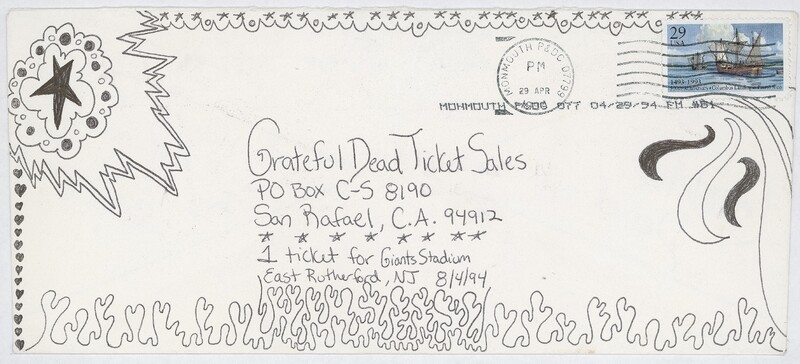 29
USA
1493-1993
MONMOUTH P&DC 07799
PM
29 APR
MONMOUTH P&DC 077 04/29/94 PM #01
Grateful Dead Ticket Sales
PO Box C-S 8190
San Rafael, C.A. 94912
1 ticket for Giants Stadium
East Rutherford, NJ 8/4/94